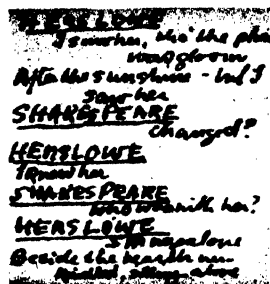 HENSLOWE
I saw her, tho' the place
was gloom
After the sunshine - but I
saw her
SHAKESPEARE
Changed?
HENSLOWE
I knew her
SHAKESPEARE
Who was with her?
HENSLOWE
She was alone
Beside the hearth